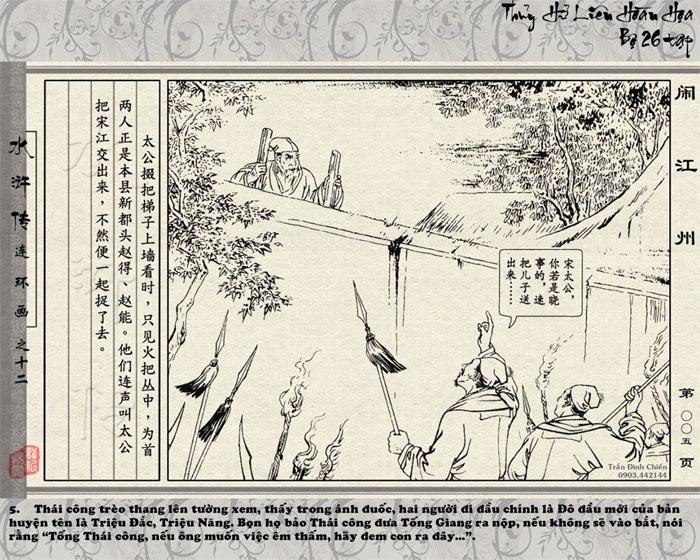 Thủy Hử Liên Hoàn Họa
Bộ 26 tập
闹江州
水浒传连环画之十二
太公掇把梯子上墙看时，只见火把丛中，为首
两人正是本县新都头赵得、赵能。他们连声叫太公
把宋江交出来，不然便一起捉了去。
宋太公，
你若是晓
事的，速
把儿子送
出来……
第〇〇五页
Trần Đình Chiến
0903.442144
5. Thái công trèo thang lên tường xem, thấy trong ánh đuốc, hai người đi đầu chính là Đô đầu mới của bản
huyện tên là Triệu Đắc, Triệu Năng. Bọn họ bảo Thái công đưa Tống Giang ra nộp, nếu không sẽ vào bắt, nói
rằng “Tống Thái công, nếu ông muốn việc êm thấm, hãy đem con ra đây...”.